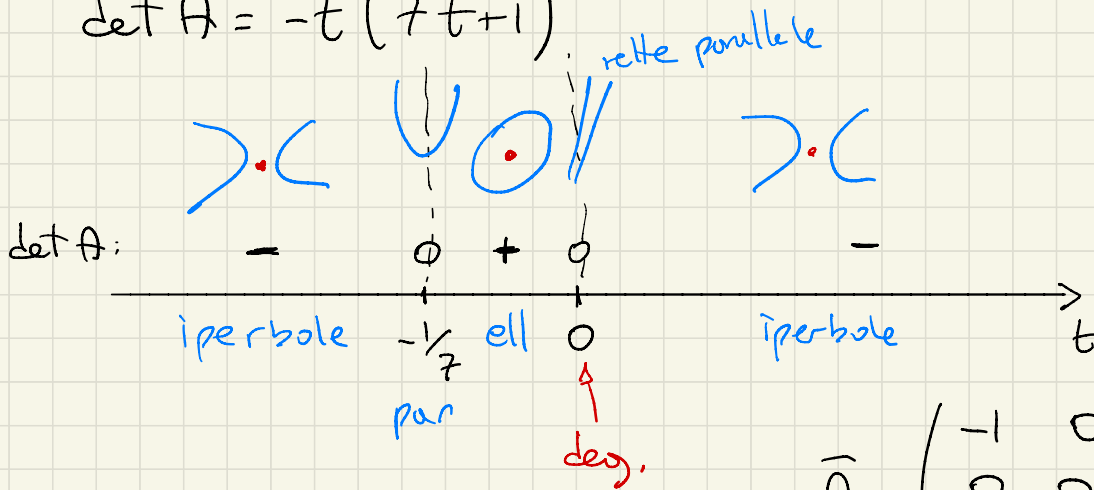 det A = -t (7t+1)
rette parallele
det A: - 0 + 0 -
iperbole -1/7 ell 0 iperbole t
par
deg.
-1 0
0 0